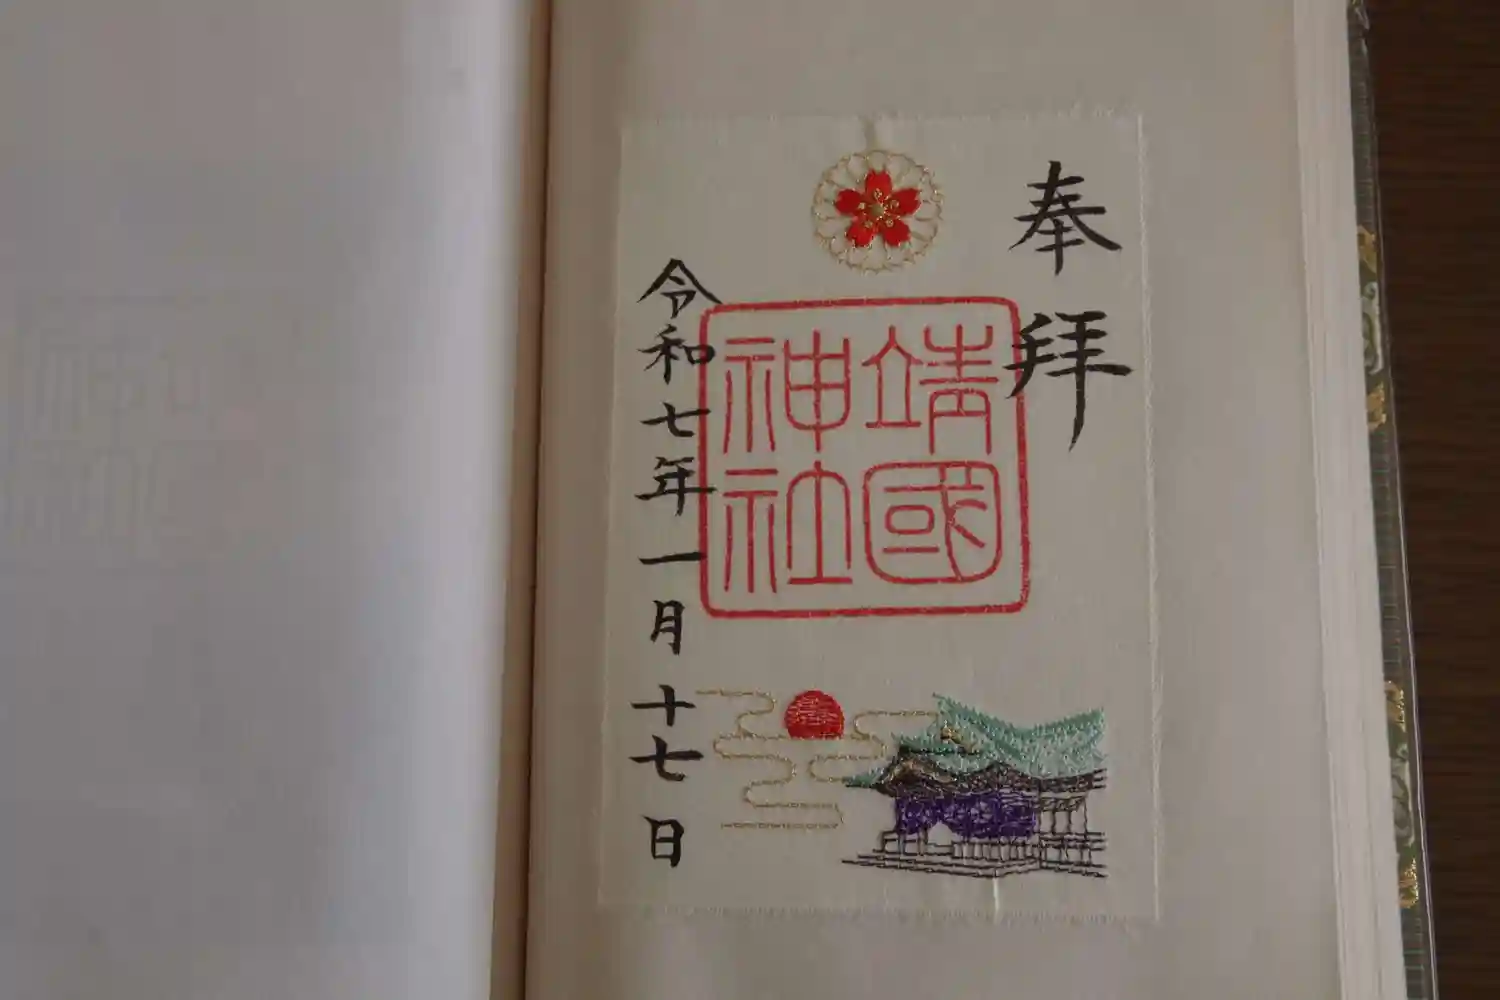 奉拜
靖國
神社
令和七年一月十七日